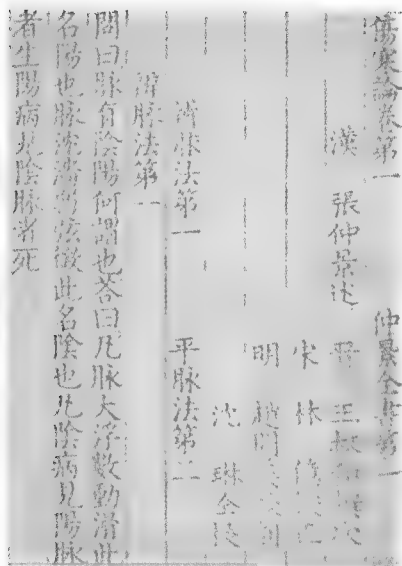 傷寒論卷第一 仲景全書第一
漢 張仲景述 晉 王叔和
宋 林
明 趙開
沈 琳仝校
辨脉法第一 平脉法第二
辨脉法第一
問曰脉有陰陽何謂也答曰凡脉大浮數動滑此
名陽也脉沈濇弱弦微此名陰也凡陰病見陽脉
者生陽病見陰脉者死